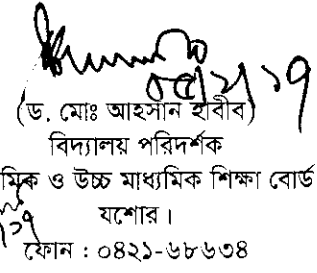 ০৫/২/১৭
(ড. মোঃ আহসান হাবীব)
বিদ্যালয় পরিদর্শক
মিক ও উচ্চ মাধ্যমিক শিক্ষা বোর্ড
যশোর।
ফোন : ০৪২১-৬৮৬৩৪